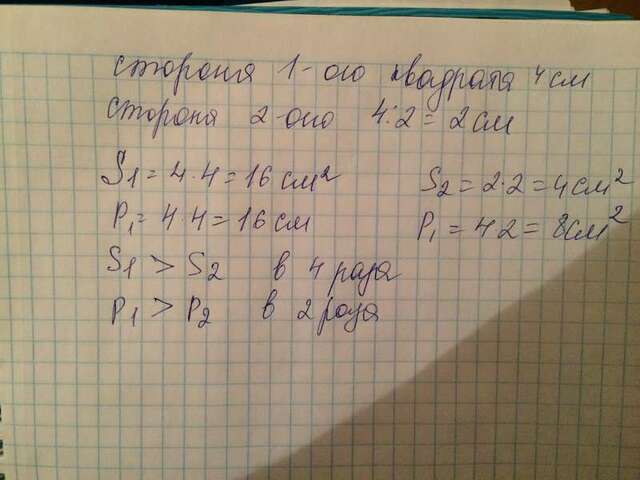 сторона 1-ого квадрата 4см
сторона 2-ого 4:2=2см
S1=4·4=16см² S2=2·2=4см²
P1=4·4=16см P1=4·2=8см²
S1>S2 в 4 раза
P1>P2 в 2 раза